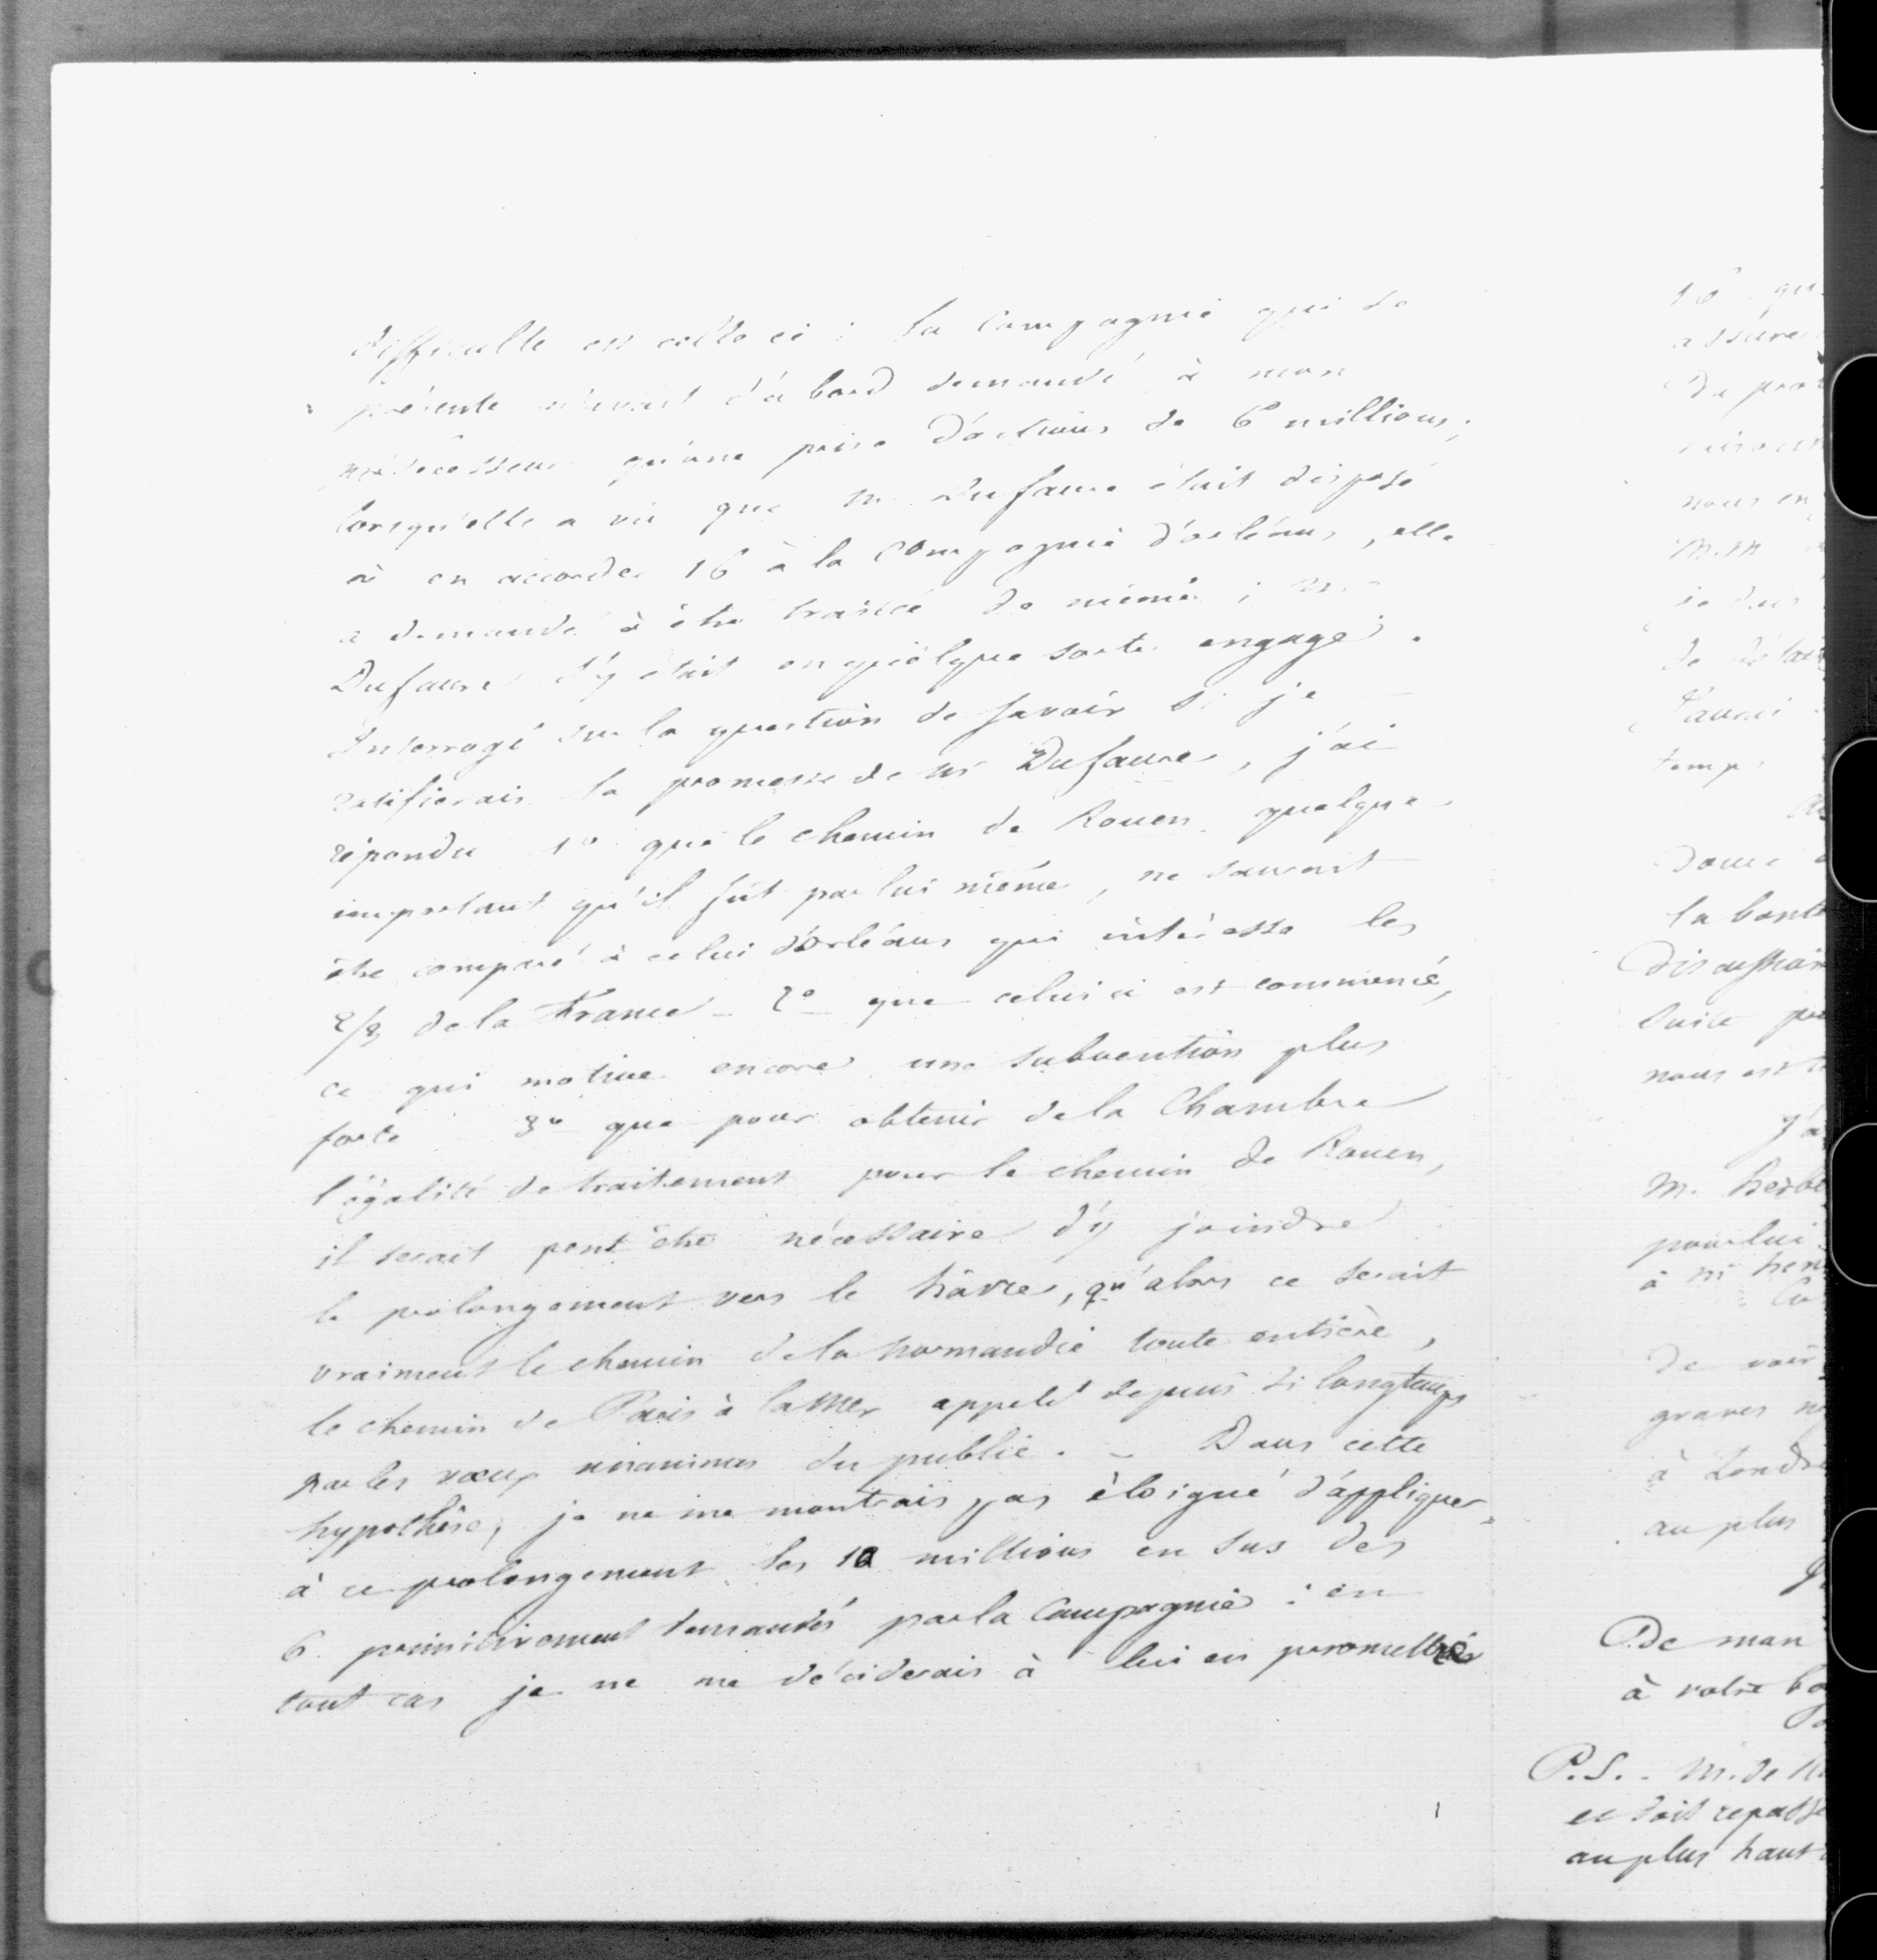 difficulté est celle ci : la Compagnie qui se
présente n'avait d'abord demandé à mon
prédécesseur qu'une prise d'actions de 6 millions ;
lorsqu'elle a vu que M. Dufaure était disposé
à en accorder 16 à la Compagnie d'orléans, elle
a demandé à être traitée de même ; M.
Dufaure s'y était en quelque sorte engagé.
Interrogé sur la question de savoir si je
ratifierais la promesse de Mr Dufaure, j'ai
répondu 1º que le chemin de Rouen quelque
important qu'il fût par lui même, ne saurait
être comparé à celui d'orléans qui intéresse les
2/3 de la France - 2º que celui ci est commencé,
ce qui motive encore une subvention plus
forte 3º que pour obtenir de la Chambre
l'égalité de traitement pour le chemin de Rouen,
il serait peut être nécessaire d'y joindre
le prolongement vers le hâvre, qu'alors ce serait
vraiment le chemin de la normandie toute entière,
le chemin de Paris à la Mer appelé depuis si longtemps
par les vœux unanimes du public. - Dans cette
hypothèse, je ne me montrais pas éloigné d'appliquer
à ce prolongement les 10 millions en sus des
6 primitivement demandés par la Compagnie : en
tout cas je ne me déciderais à lui en promettre
16 qu
assure
Du pro
nous en
M. M
je dois
J'aurai
temps
Donc
la bonté
Discussion
Suite
nous est
J'a
M. herbe
pour lui
à Mr hen
De voir
graves
à Londre
au plus
De mon
à votre
P.S. - M. de
et doit repasse
au plus haut